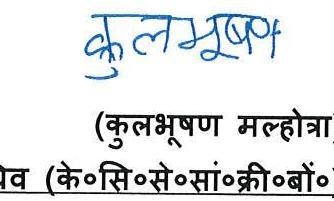 कुलभूषण
(कुलभूषण मल्होत्रा)
(के०सि०से०सां०क्री०बों०